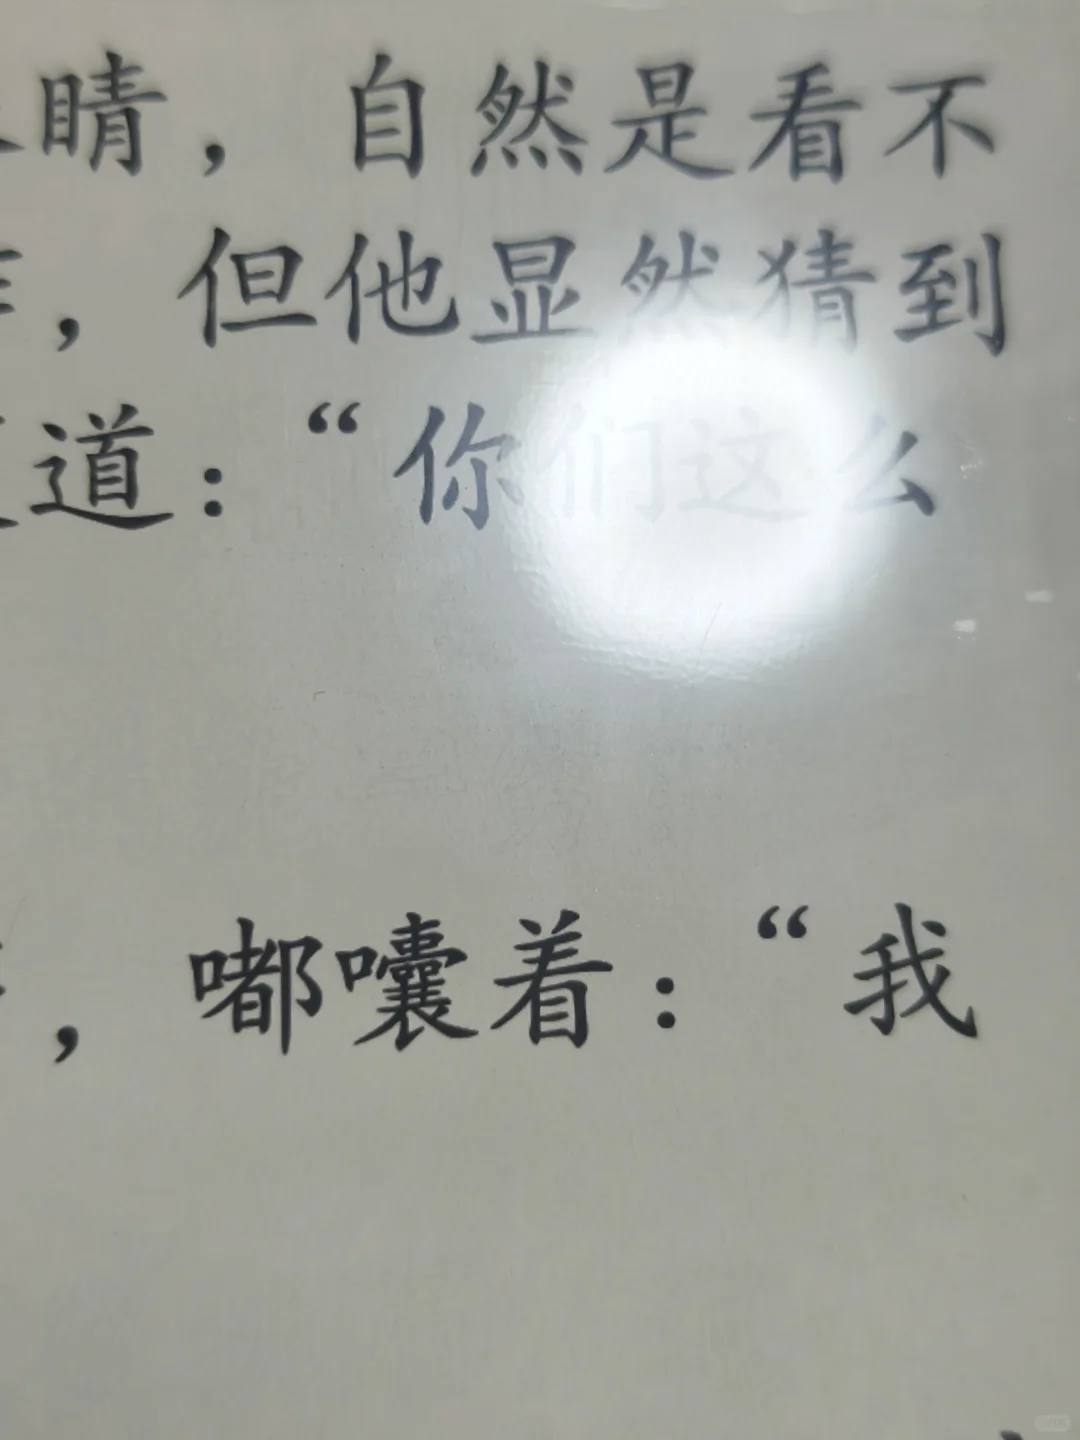 睛，自然是看不
，但他显然猜到
道：“你们这么
，嘟囔着：“我